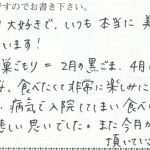 ですのでお書き下さい。
大好きで、いつも本当に美
います!
巣ごもり = 2月の黒ごま、4月
、食べたくて非常に楽しみに
、病気で入院してしまい食べ
悲しい思いでした。また今月か
頂いてい